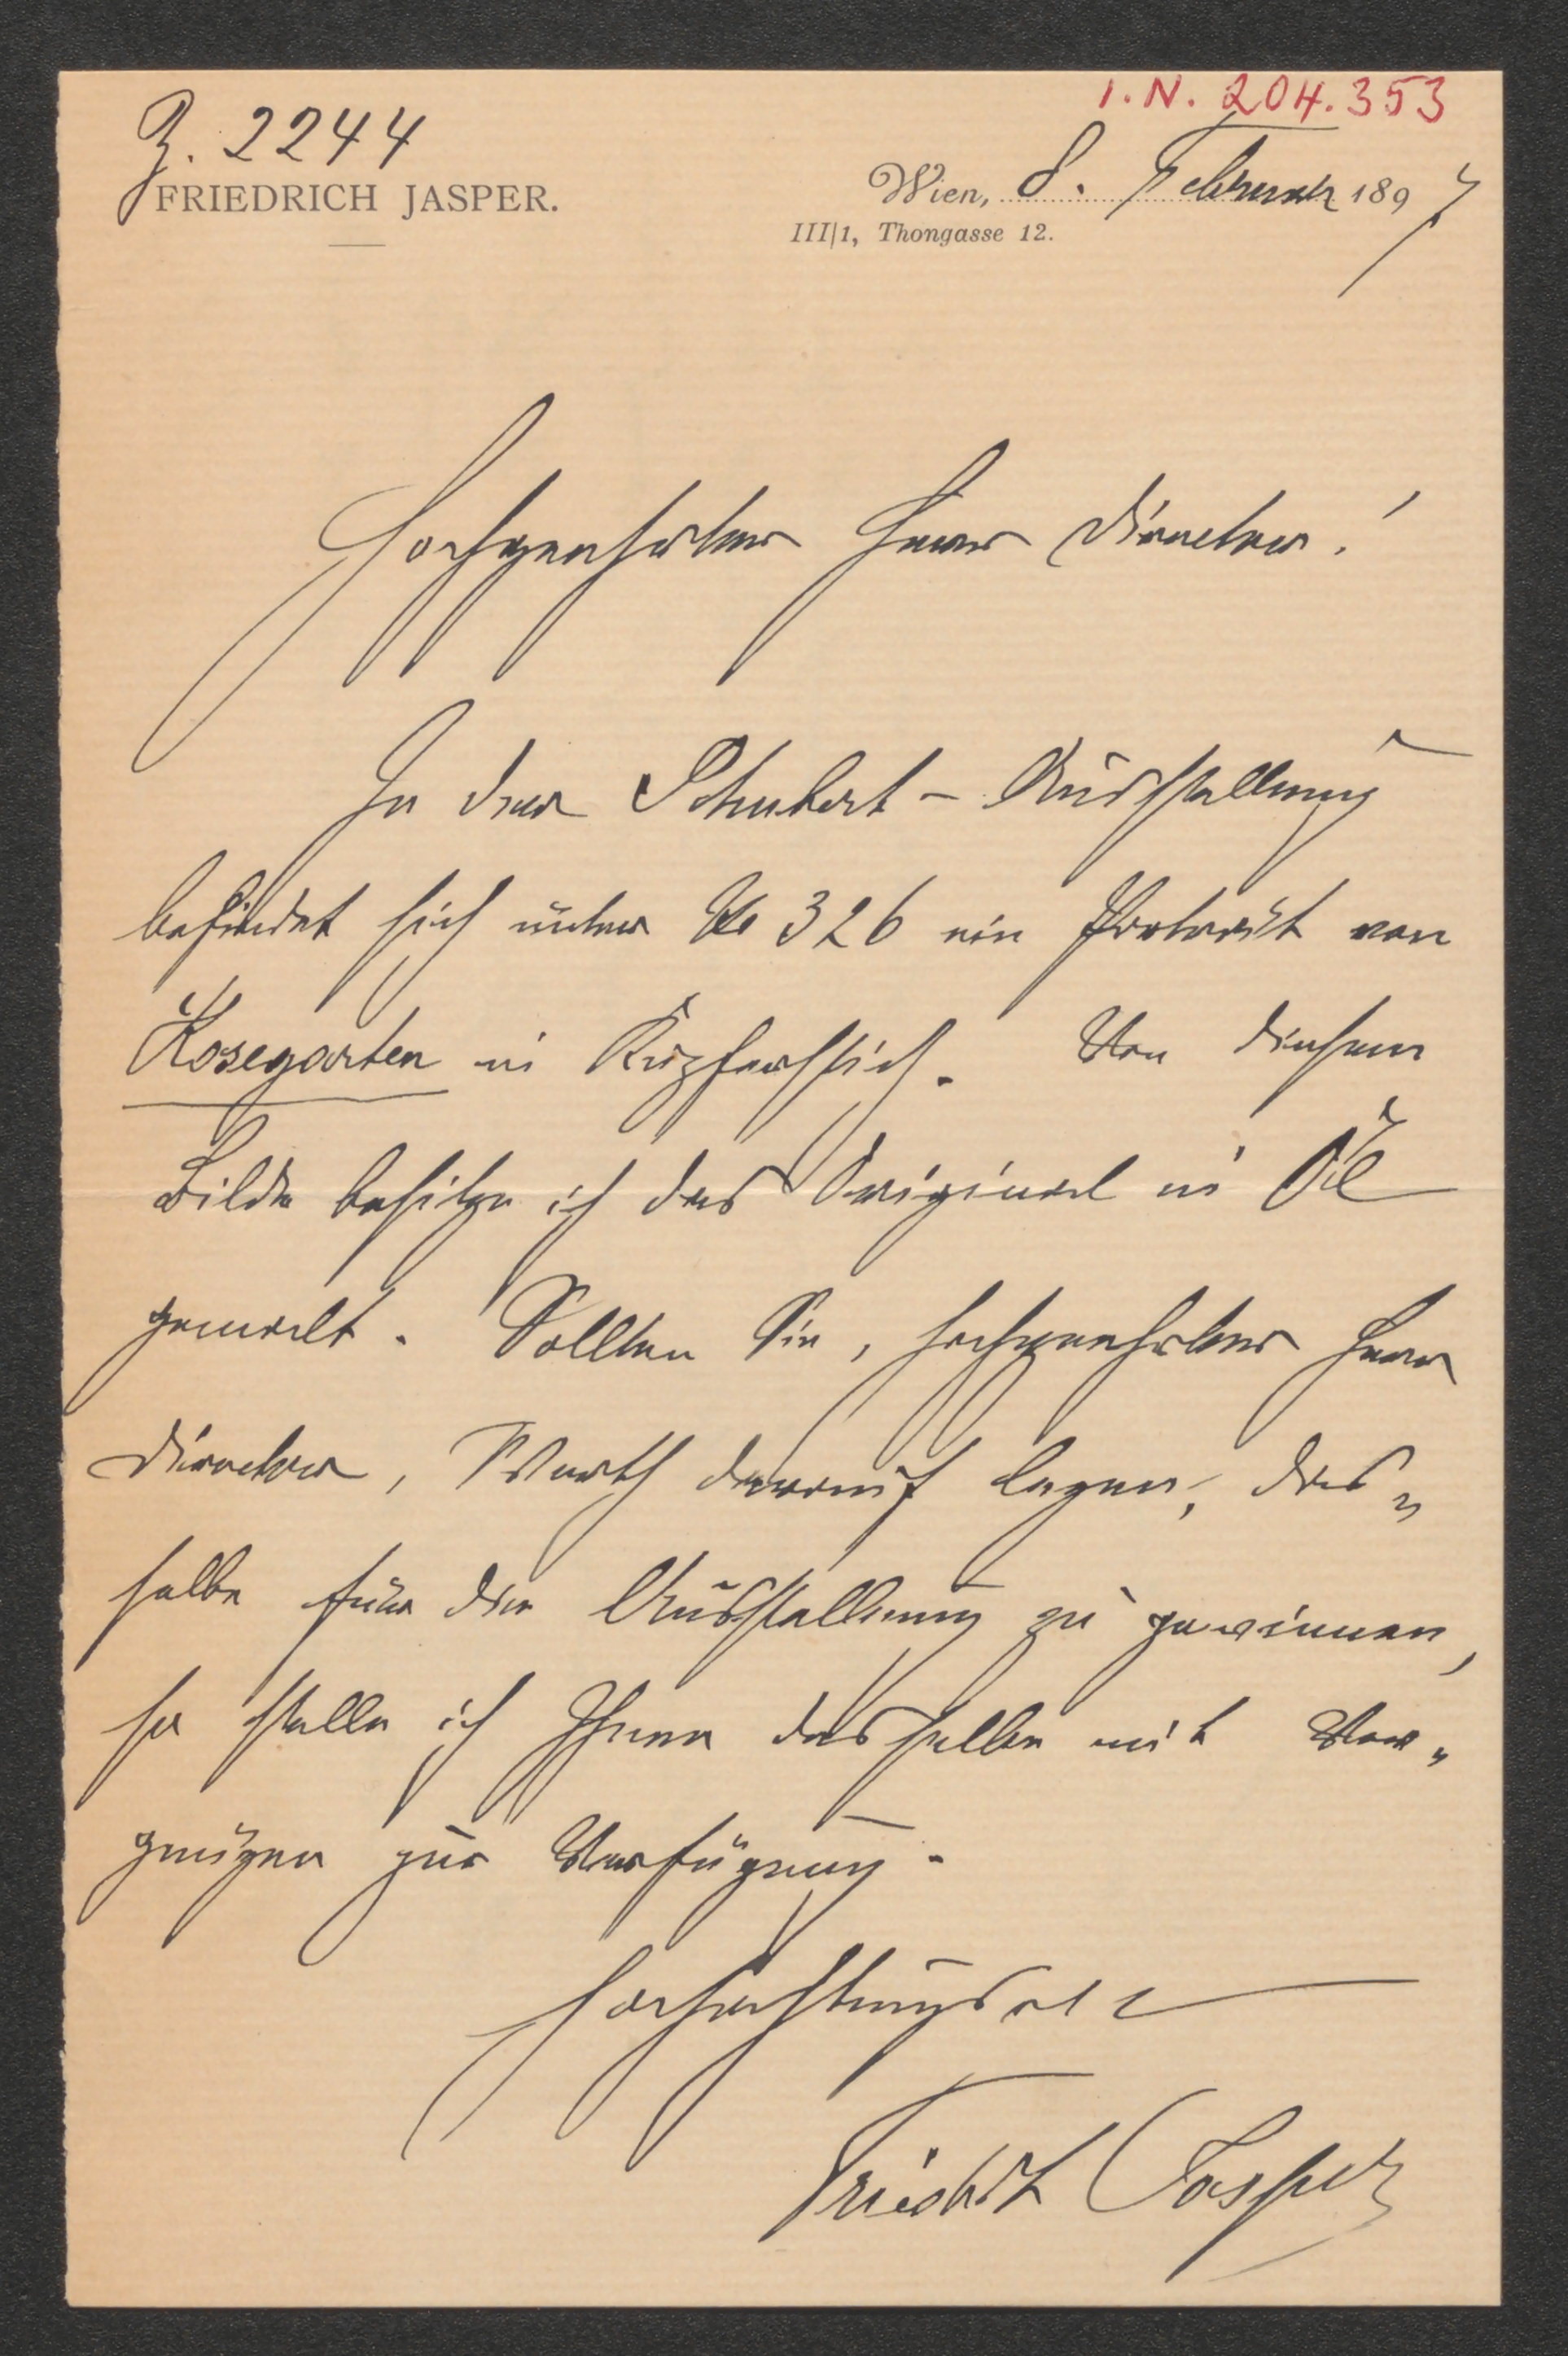 I. N. 204.353
Z. 2244
FRIEDRICH JASPER.
Wien, 8. Februar 1897
III|1, Thongasse 12.
Hochgeehrter Herr Director!
In der Schubert-Ausstellung
befindet sich unter No 326 ein Portrait von
Kosegarten in Kupferstich. Von diesem
Bilde besitze ich das Original in Öl
gemalt. Sollten Sie, hochgeehrter Herr
Director, Werth darauf legen, das„
selbe für die Ausstellung zu gewinnen,
so stelle ich Ihnen dasselbe mit Ver„
gnügen zur Verfügung.
Hochachtungsvoll
Friedrich Jasper